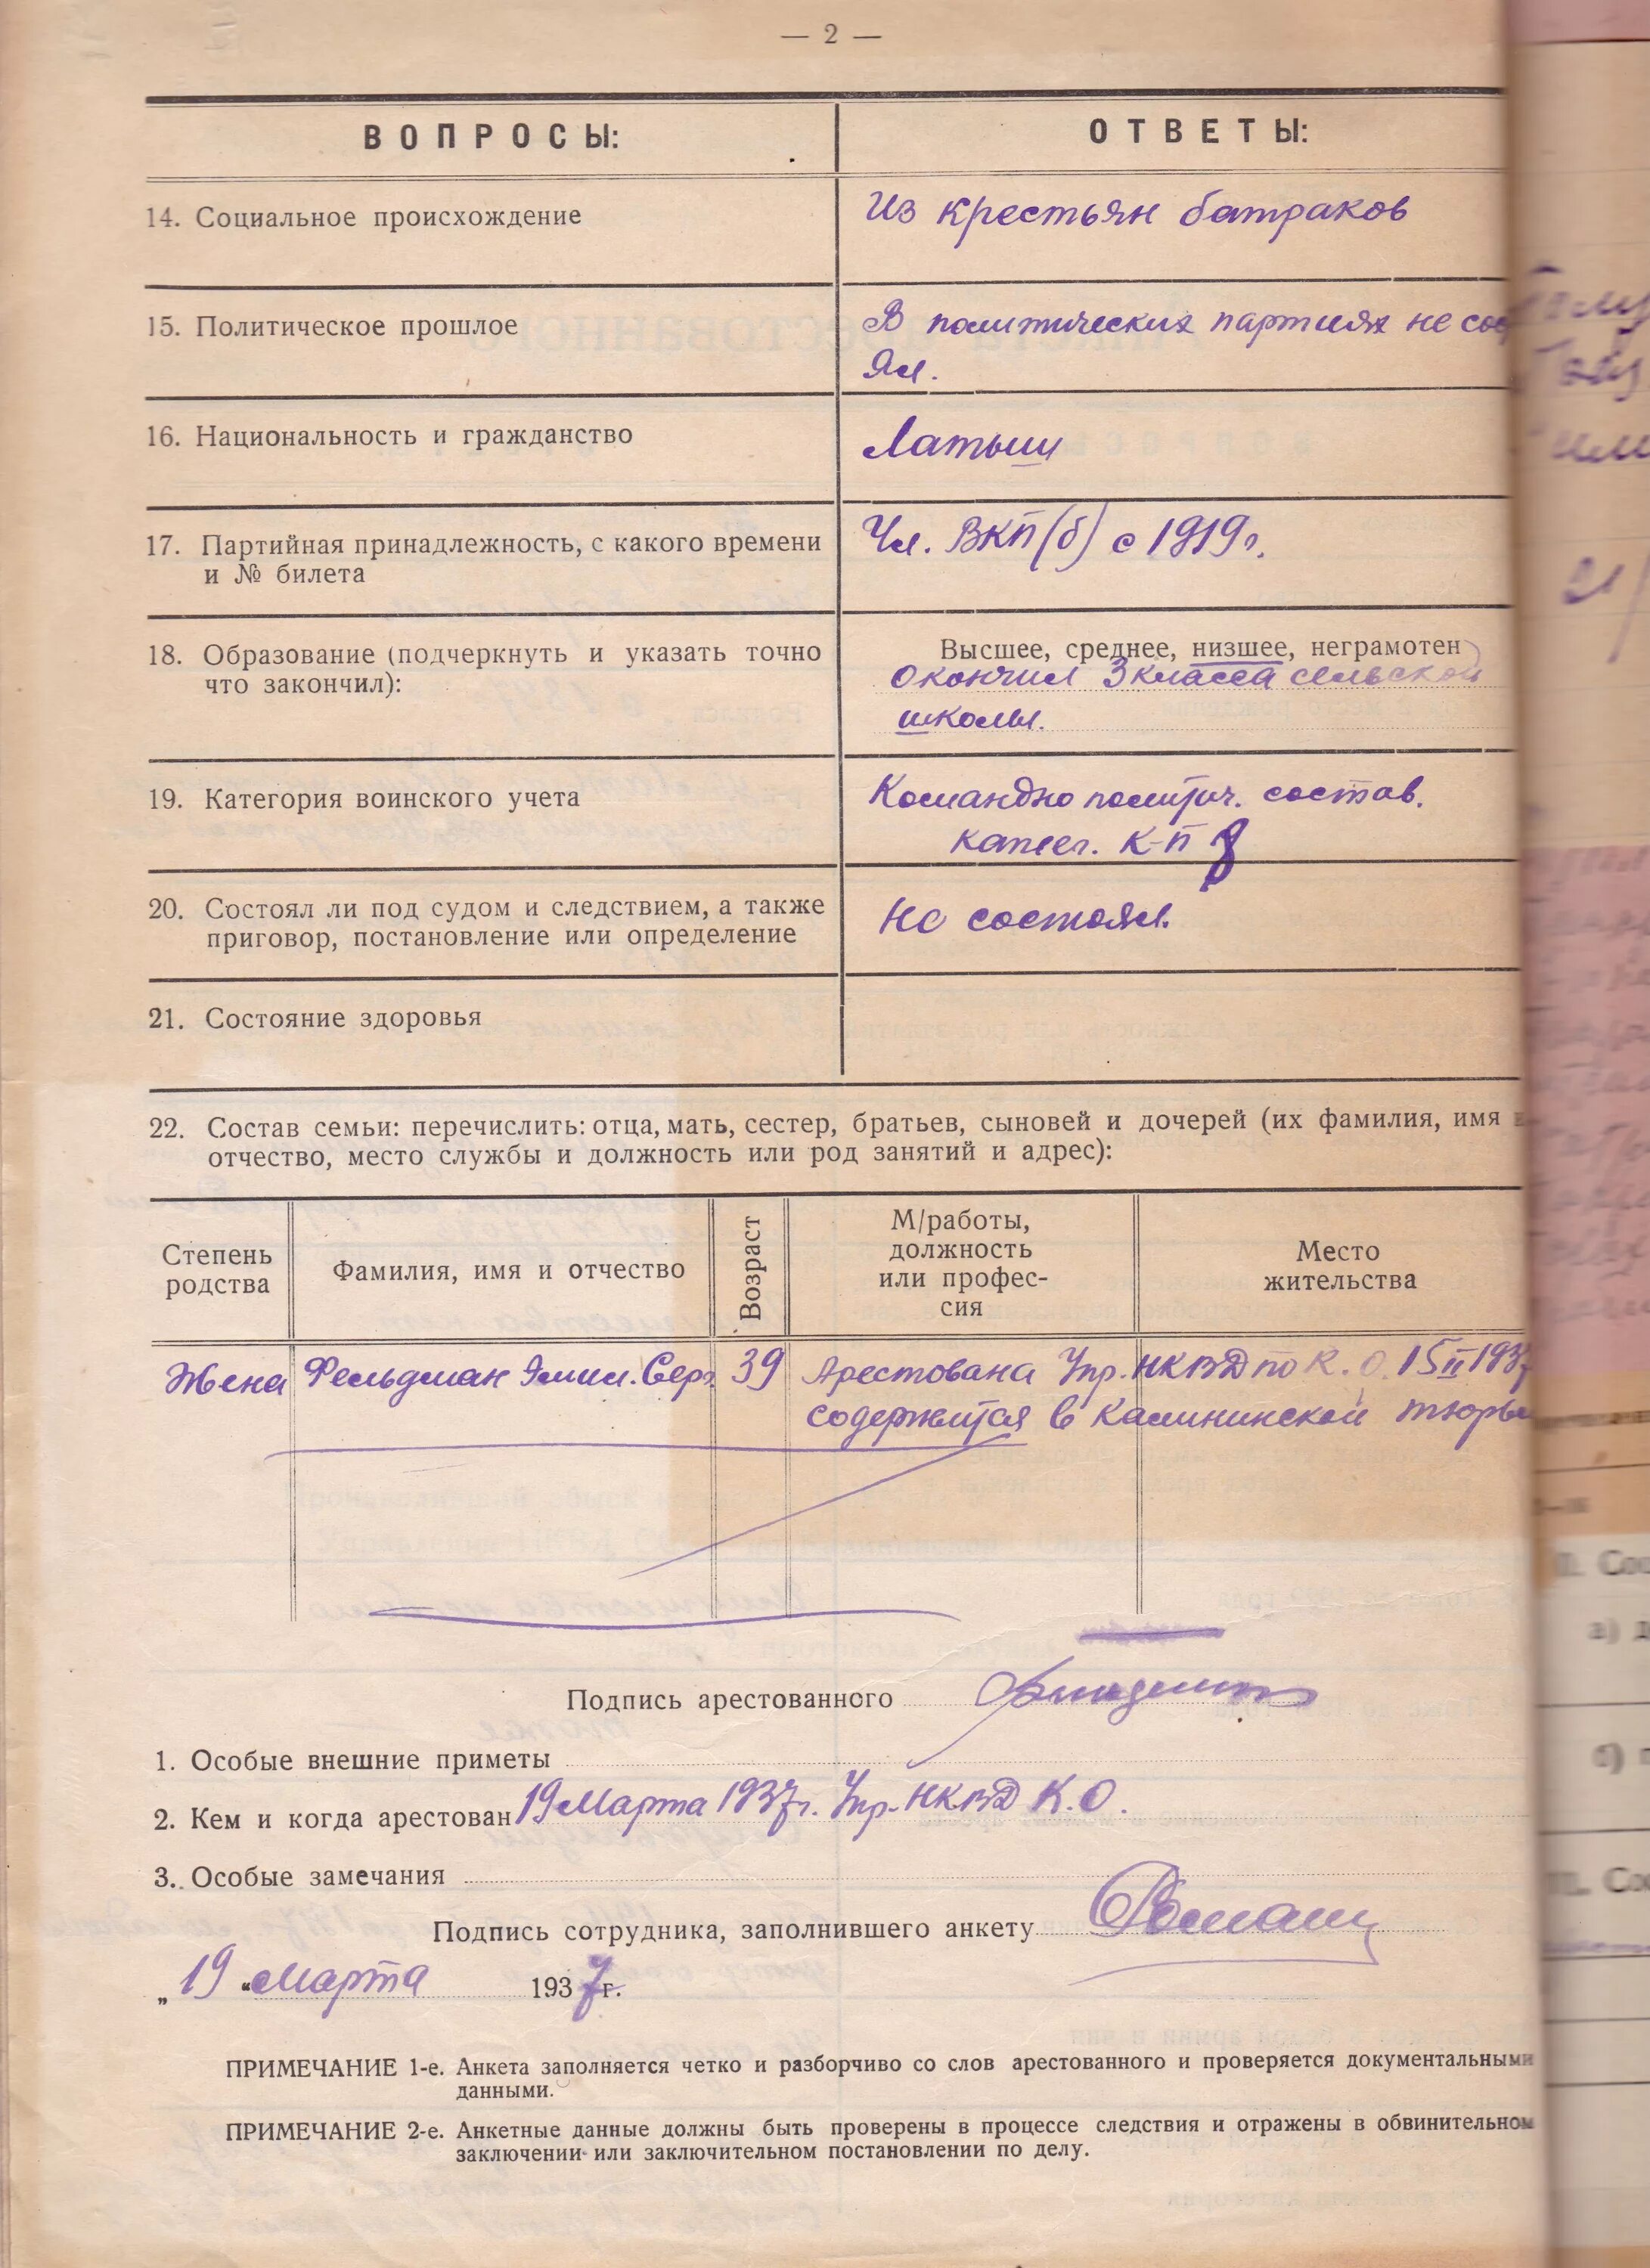 — 2 —
ВОПРОСЫ:
ОТВЕТЫ:
14. Социальное происхождение
Из крестьян батраков
15. Политическое прошлое
В политических партиях не сос
ял.
16. Национальность и гражданство
Латыш
17. Партийная принадлежность, с какого времени
и № билета
Чл. ВКП(б) с 1919 г.
18. Образование (подчеркнуть и указать точно
что закончил):
Высшее, среднее, низшее, неграмотен
окончил 3 класса сельской
школы.
19. Категория воинского учета
Командно политич. состав.
катег. К-П 8
20. Состоял ли под судом и следствием, а также
приговор, постановление или определение
Не состоял.
21. Состояние здоровья
22. Состав семьи: перечислить: отца, мать, сестер, братьев, сыновей и дочерей (их фамилия, имя и
отчество, место службы и должность или род занятий и адрес):
Степень
родства
Фамилия, имя и отчество
Возраст
М/работы,
должность
или профес-
сия
Место
жительства
Жена Фельдман Эмил. Серг 39 Арестована Упр. НКВД по К. О. 15 II 1937
содержится в Калининской тюрьм
Подпись арестованного
1. Особые внешние приметы
2. Кем и когда арестован 19 Марта 1937 г. Упр. НКВД К.О.
3. Особые замечания
Подпись сотрудника, заполнившего анкету
„ 19 “ Марта 1937 г.
ПРИМЕЧАНИЕ 1-е. Анкета заполняется четко и разборчиво со слов арестованного и проверяется документальными
данными.
ПРИМЕЧАНИЕ 2-е. Анкетные данные должны быть проверены в процессе следствия и отражены в обвинительном
заключении или заключительном постановлении по делу.